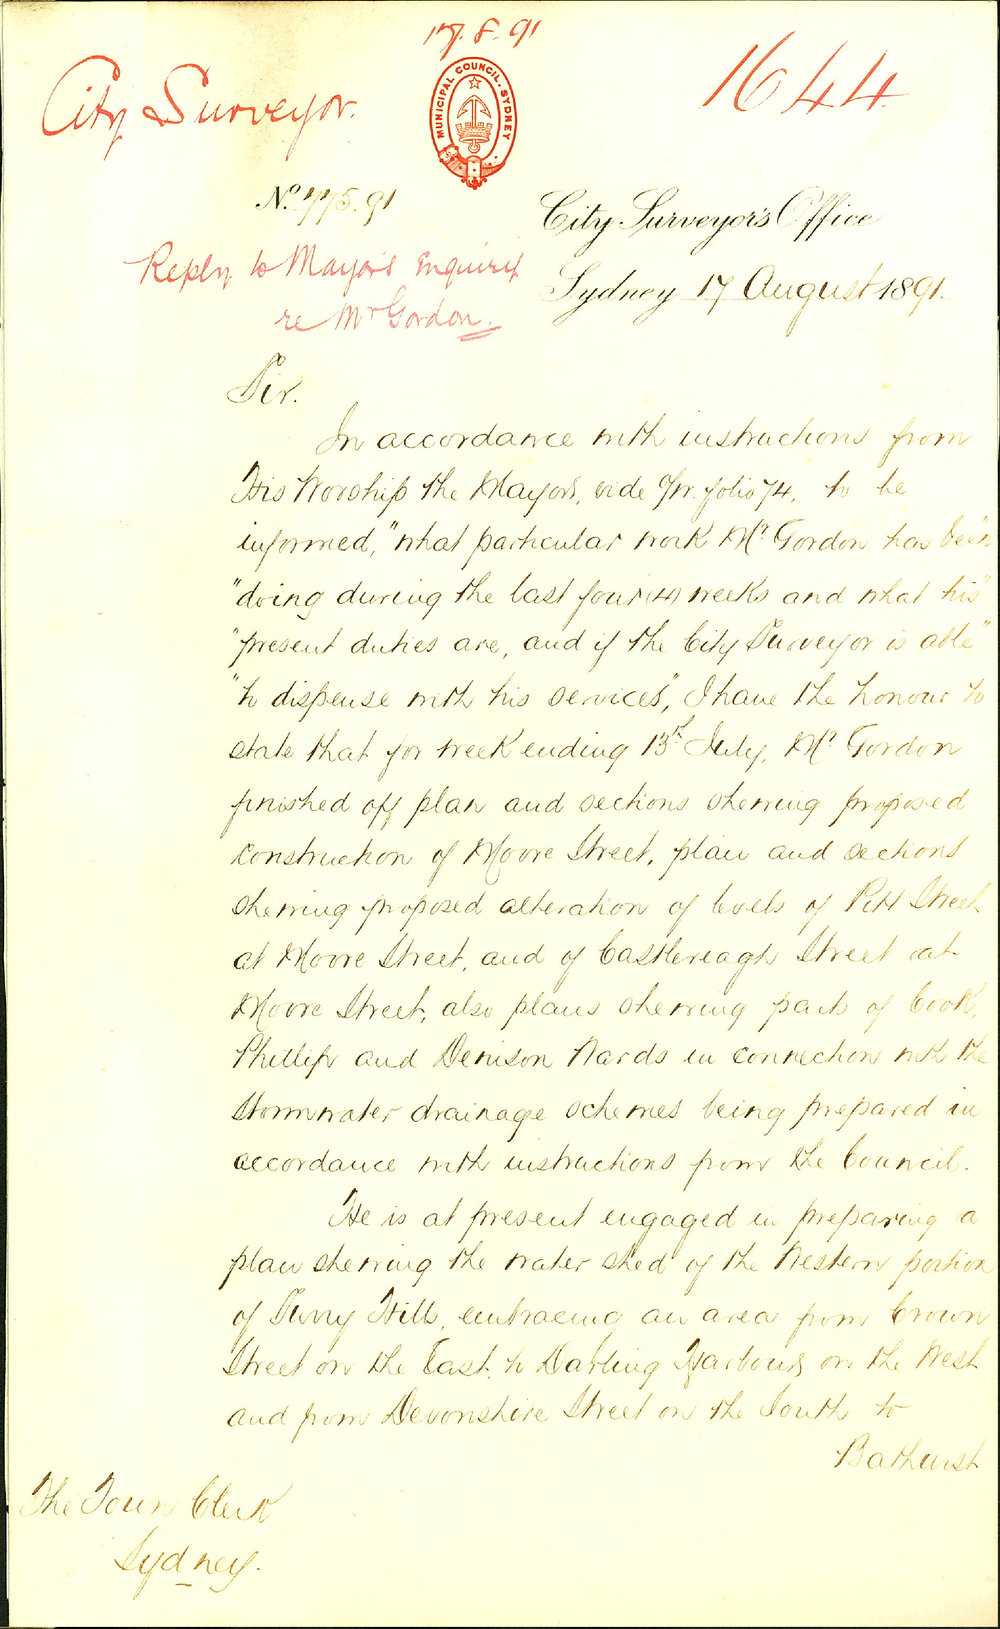 17.8.91
City Surveyor.
1644
MUNICIPAL COUNCIL. SYDNEY
No. 775.91
City Surveyor's Office
Reply to Mayor's Enquiry
Sydney 17 August 1891.
re Mr Gordon.
Sir.
In accordance with instructions from
His Worship the Mayor, vide folio 74, to be
informed, "what particular work Mr. Gordon has been
"doing during the last four (4) weeks and what his"
"present duties are, and if the City Surveyor is able"
"to dispense with his services", I have the honour to
state that for week ending 13th July, Mr. Gordon
finished off plan and sections shewing proposed
construction of Moore Street, plan and sections
shewing proposed alteration of levels of Pitt Street
at Moore Street, and of Castlereagh Street at
Moore Street, also plans shewing parts of Cook,
Phillip and Denison Wards in connection with the
Stormwater drainage schemes being prepared in
accordance with instructions from the Council.
He is at present engaged in preparing a
plan shewing the water shed of the Western portion
of Surry Hills, embracing an area from Crown
Street on the East, to Darling Harbour, on the West
and from Devonshire Street on the South to
Bathurst
The Town Clerk
Sydney.